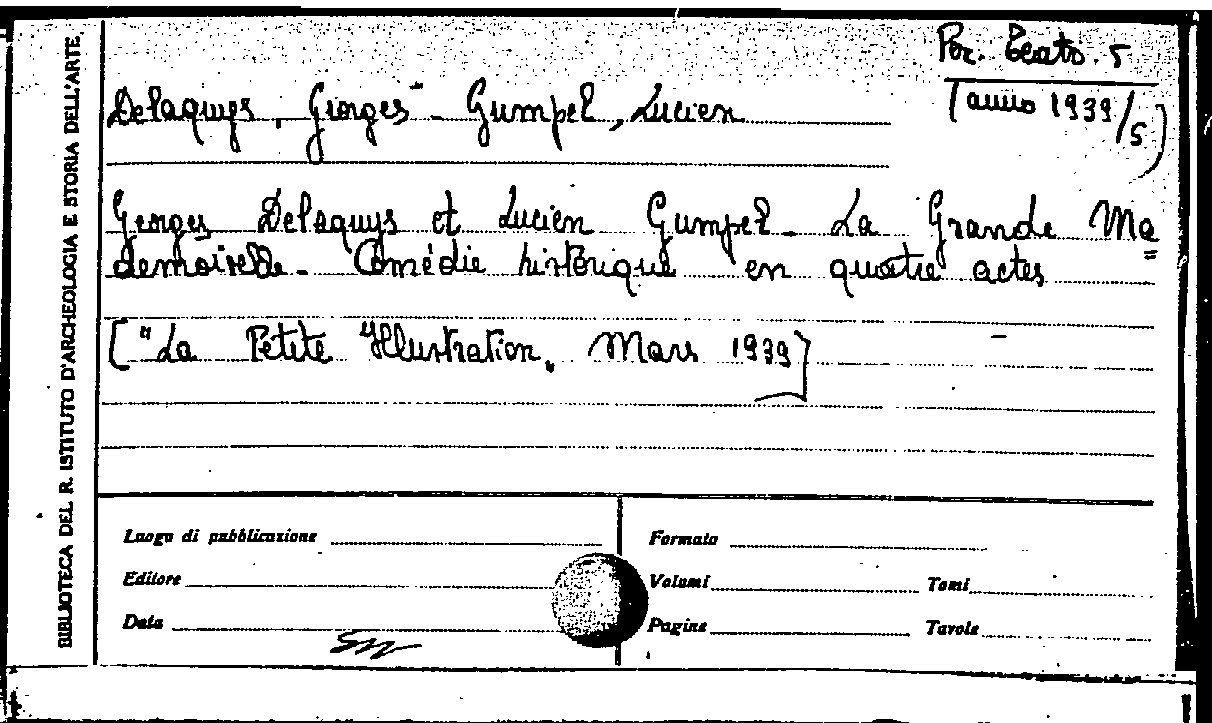 BIBLIOTECA DEL R. ISTITUTO D'ARCHEOLOGIA E STORIA DELL'ARTE
Per. Teatro. 5
(anno 1939/5)
Delaquys, Georges - Gumpel, Lucien
Georges Delaquys et Lucien Gumpel. La Grande Ma=
demoiselle. Comédie historique en quatre actes
["La Petite Illustration„ Mars 1939]
Luogo di pubblicazione
Formato
Editore
Volumi
Tomi
Data
Pagine
Tavole